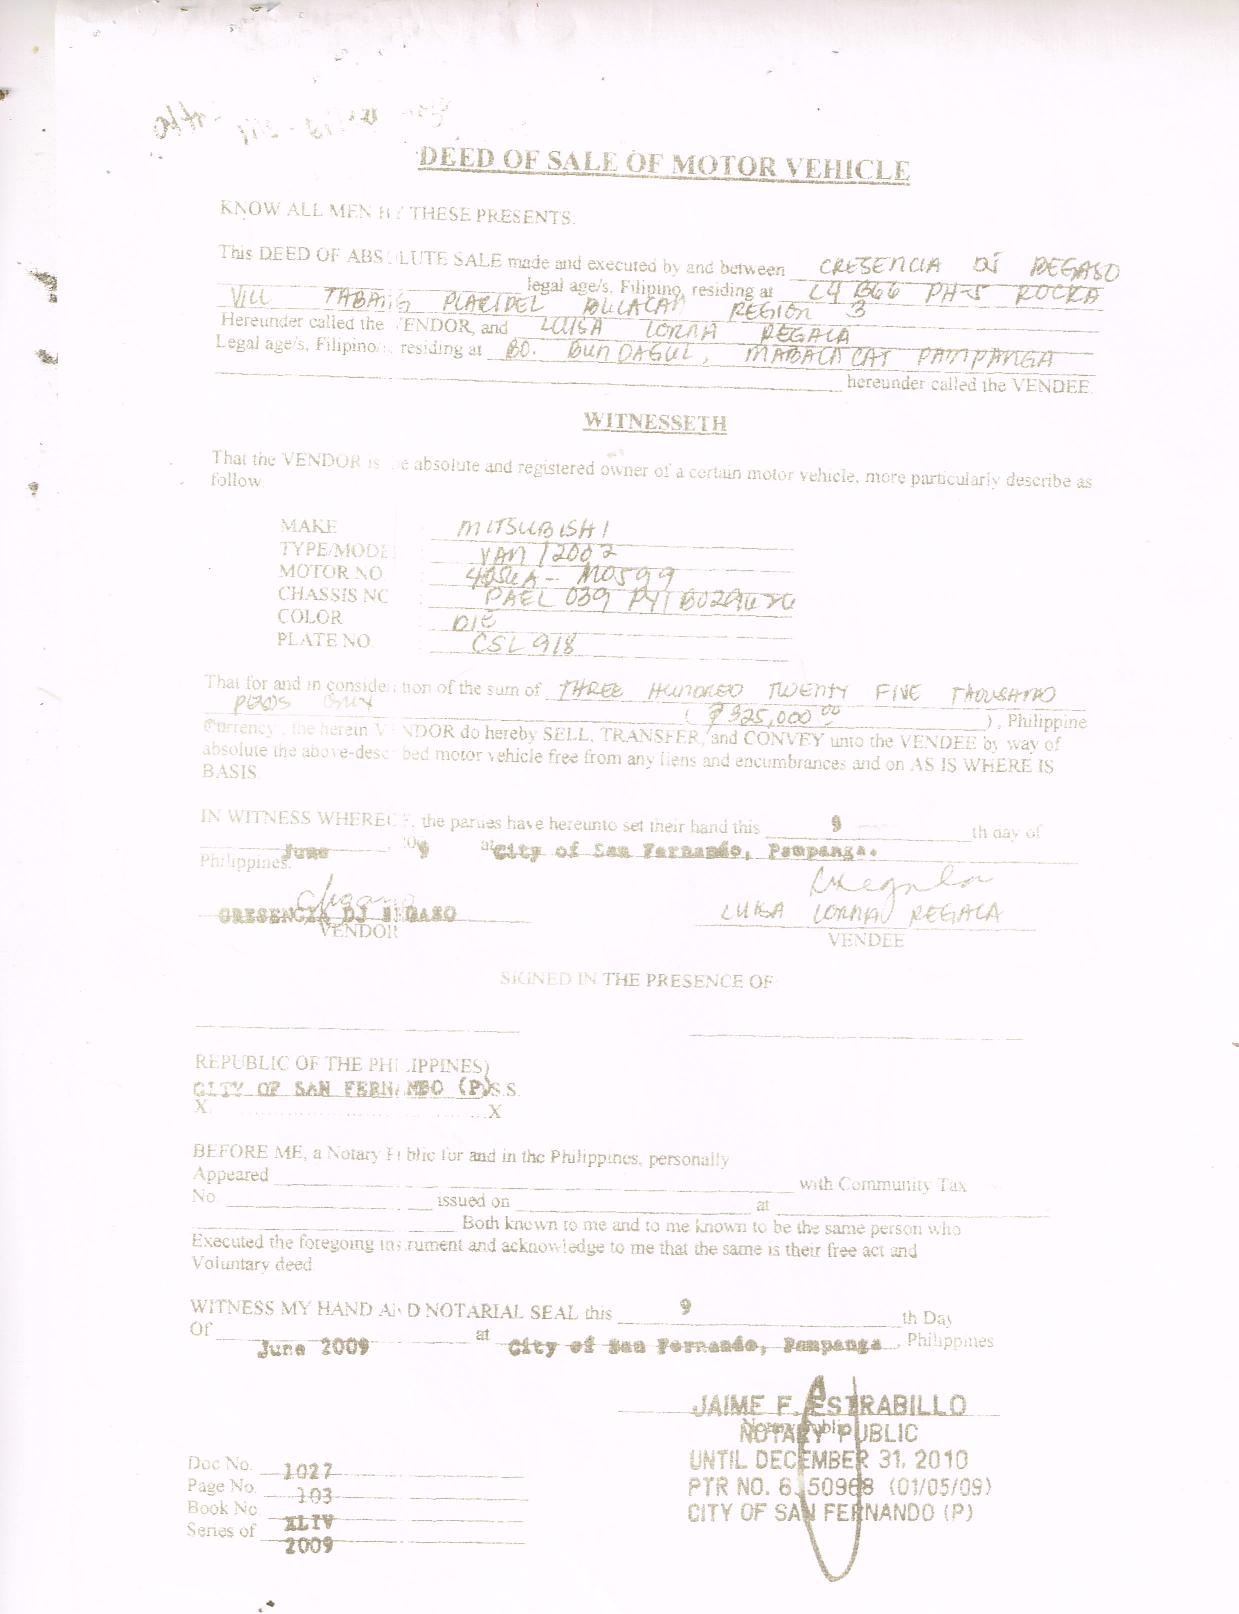 DEED OF SALE OF MOTOR VEHICLE
KNOW ALL MEN BY THESE PRESENTS.
This DEED OF ABSOLUTE SALE made and executed by and between CRESENCIA DJ REGASO
legal age/s, Filipino, residing at L4 B66 PH-5 ROCKA
VILL TABANG PLARIDEL BULACAN REGION 3
Hereunder called the VENDOR, and LUISA LORNA REGALA
Legal age/s, Filipino/s, residing at BO. BUNDAGUL, MABALACAT PAMPANGA
hereunder called the VENDEE.
WITNESSETH
That the VENDOR is the absolute and registered owner of a certain motor vehicle, more particularly describe as
follow
MAKE MITSUBISHI
TYPE/MODEL VAN / 2002
MOTOR NO
CHASSIS NO
COLOR
PLATE NO. CSL 918
That for and in consideration of the sum of THREE HUNDRED TWENTY FIVE THOUSAND
PESOS ONLY (₱325,000.00), Philippine
Currency, the herein VENDOR do hereby SELL, TRANSFER, and CONVEY unto the VENDEE by way of
absolute the above-described motor vehicle free from any liens and encumbrances and on AS IS WHERE IS
BASIS.
IN WITNESS WHEREOF, the parties have hereunto set their hand this 9 th day of
June, 2009 at City of San Fernando, Pampanga.
Philippines.
CRESENCIA DJ REGASO LUISA LORNA REGALA
VENDOR VENDEE
SIGNED IN THE PRESENCE OF
REPUBLIC OF THE PHILIPPINES)
CITY OF SAN FERNANDO (P)S.S.
X X
BEFORE ME, a Notary Public for and in the Philippines, personally
Appeared with Community Tax
No issued on at
Both known to me and to me known to be the same person who
Executed the foregoing instrument and acknowledge to me that the same is their free act and
Voluntary deed.
WITNESS MY HAND AND NOTARIAL SEAL this 9 th Day
Of June 2009 at City of San Fernando, Pampanga, Philippines
JAIME F. ESTRABILLO
NOTARY PUBLIC
UNTIL DECEMBER 31, 2010
PTR NO. 50968 (01/05/09)
CITY OF SAN FERNANDO (P)
Doc No. 1027
Page No. 103
Book No XLIV
Series of 2009